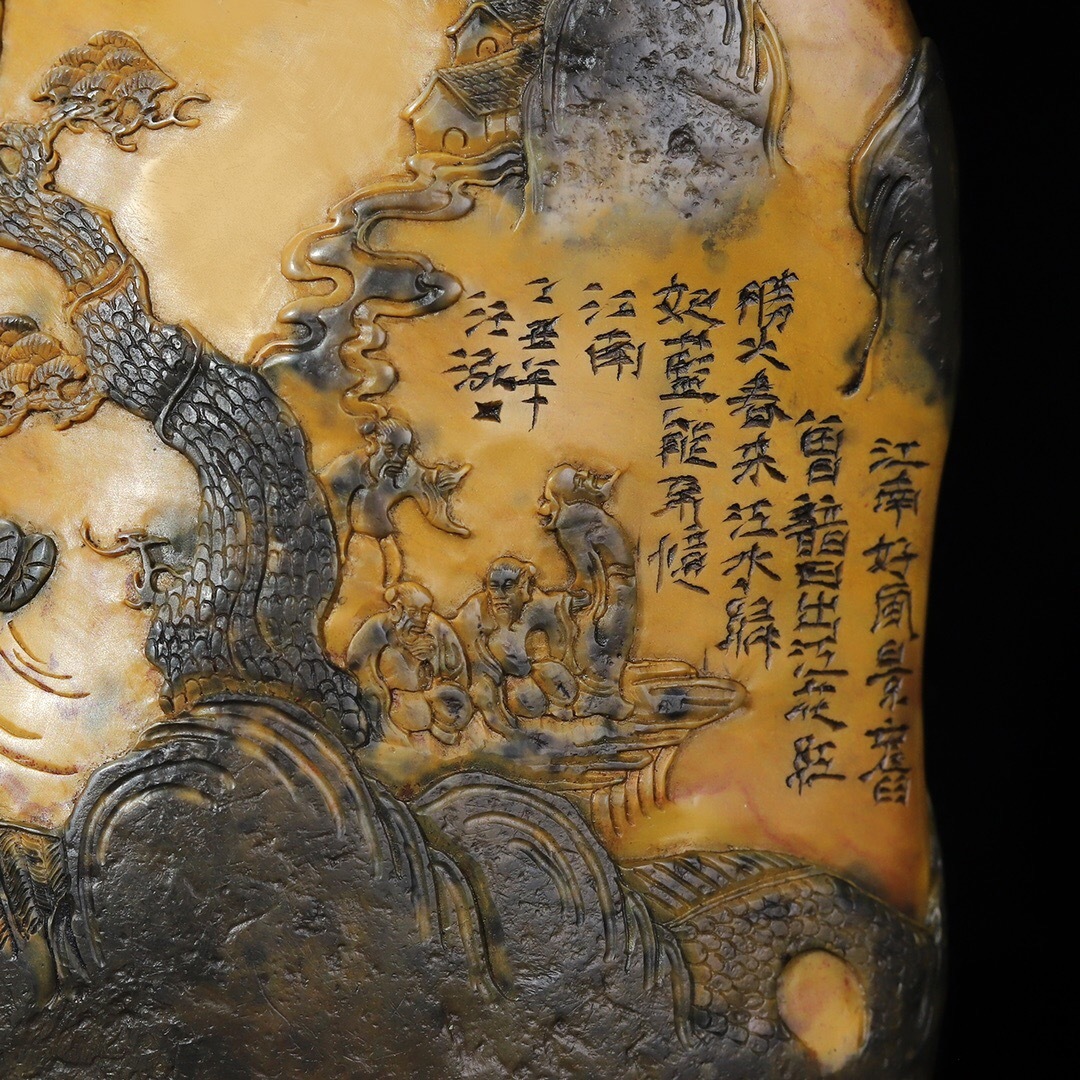 江南好風景舊
曾諳日出江花紅
勝火春來江水綠
如藍能不憶
江南
丑年
江泓